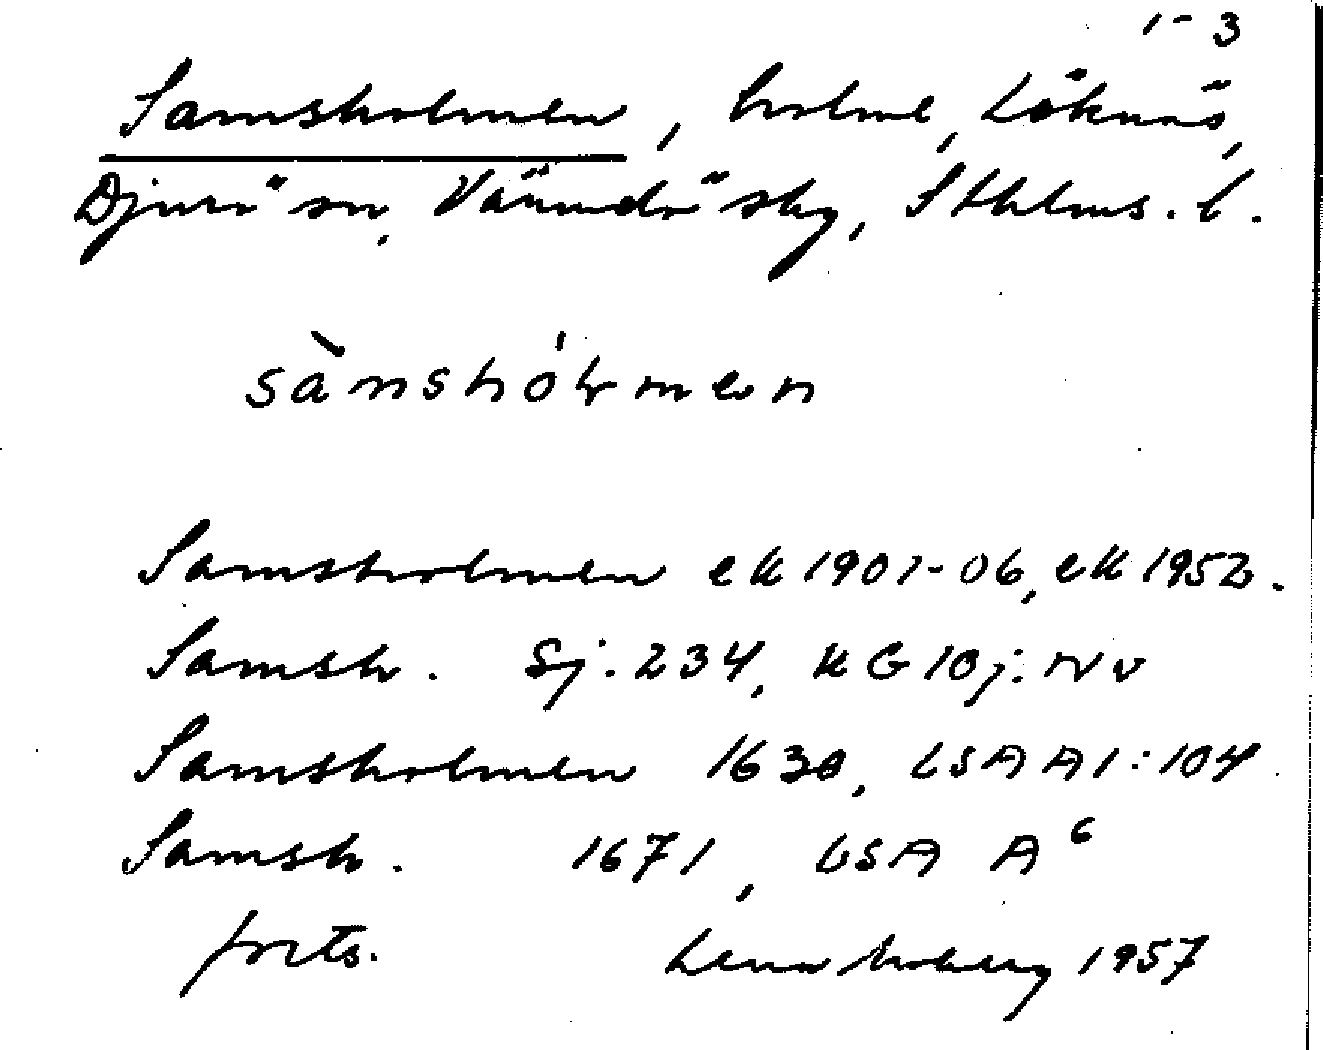 1-3
Samsholmen, holme, Löknäs,
Djurö sn, Värmdö skg, Sthlms. l.
sànshólmen
Samsholmen ek 1901-06, ek 1952.
Samsh. Sj. 234, KG 10j: NV
Samsholmen 1630, LSA A1:104
Samsh. 1671, LSA A 6
forts. Moberg 1957